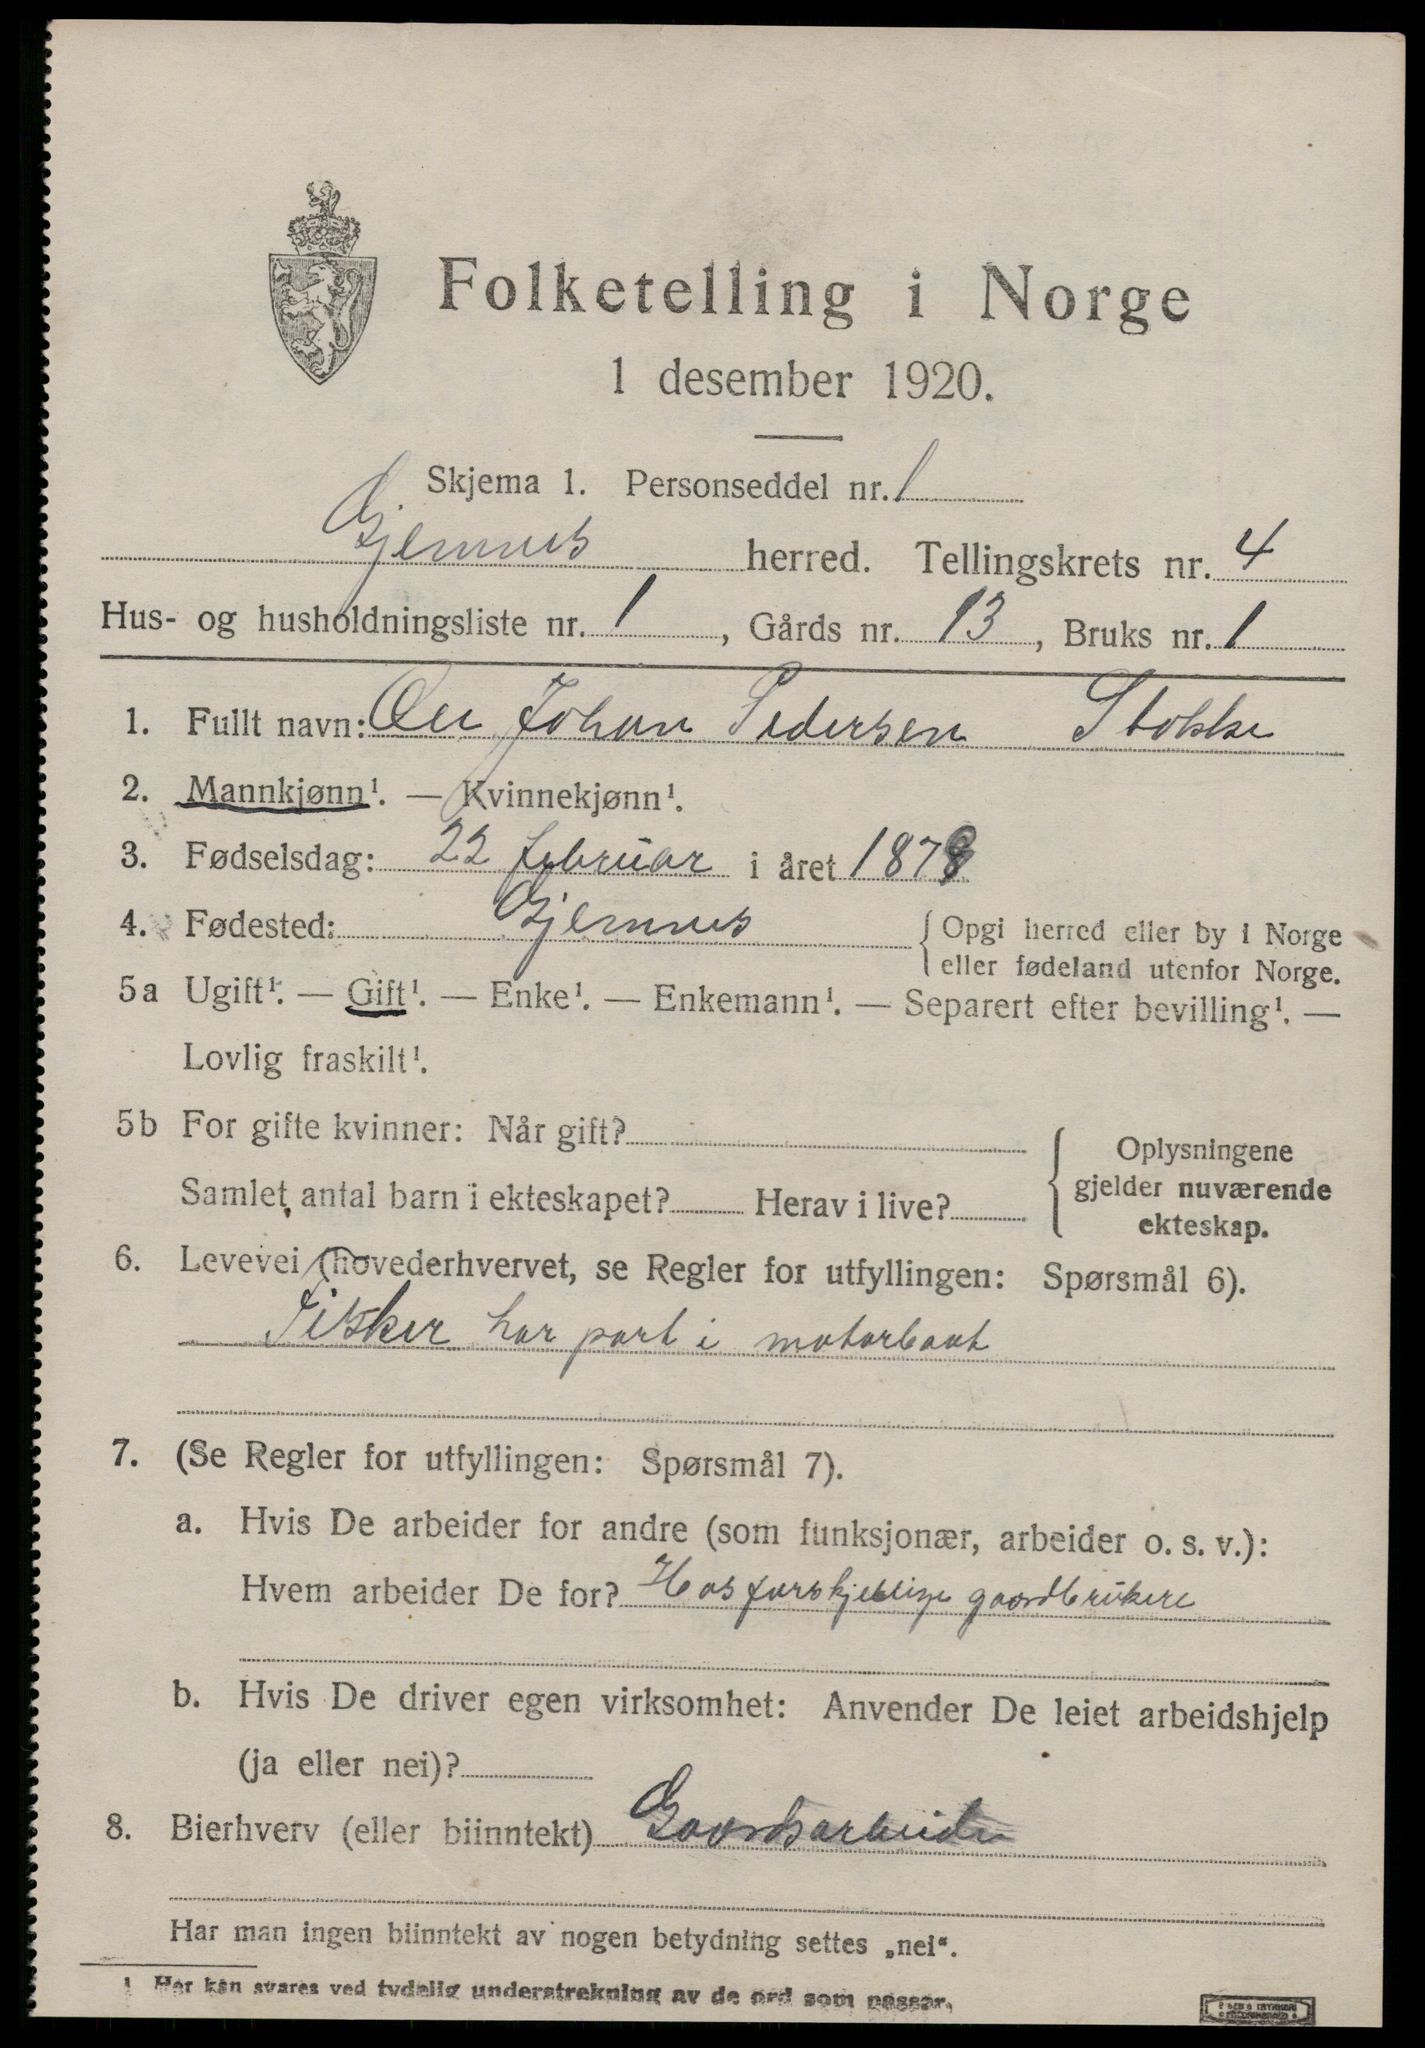 Folketelling i Norge
1 desember 1920.
Skjema 1. Personseddel nr. 1
Gjemnes herred. Tellingskrets nr. 4
Hus- og husholdningsliste nr. 1, Gårds nr. 13, Bruks nr. 1
1. Fullt navn: Johan Pedersen Stokke
2. Mannkjønn¹. — Kvinnekjønn¹.
3. Fødselsdag: 22 februar i året 1878
4. Fødested: Gjemnes { Opgi herred eller by i Norge
eller fødeland utenfor Norge.
5a Ugift¹. — Gift¹. — Enke¹. — Enkemann¹. — Separert efter bevilling¹. —
Lovlig fraskilt¹.
5b For gifte kvinner: Når gift?
Samlet antal barn i ekteskapet? Herav i live?
{ Oplysningene
gjelder nuværende
ekteskap.
6. Levevei (hovederhvervet, se Regler for utfyllingen: Spørsmål 6).
Fisker har part i motorbaat
7. (Se Regler for utfyllingen: Spørsmål 7).
a. Hvis De arbeider for andre (som funksjonær, arbeider o. s. v.):
Hvem arbeider De for? Hos forskjellige gaardbrukere
b. Hvis De driver egen virksomhet: Anvender De leiet arbeidshjelp
(ja eller nei)?
8. Bierhverv (eller biinntekt) Gaardsarbeider
Har man ingen biinntekt av nogen betydning settes „nei“.
1 Her kan svares ved tydelig understrekning av de ord som passer.